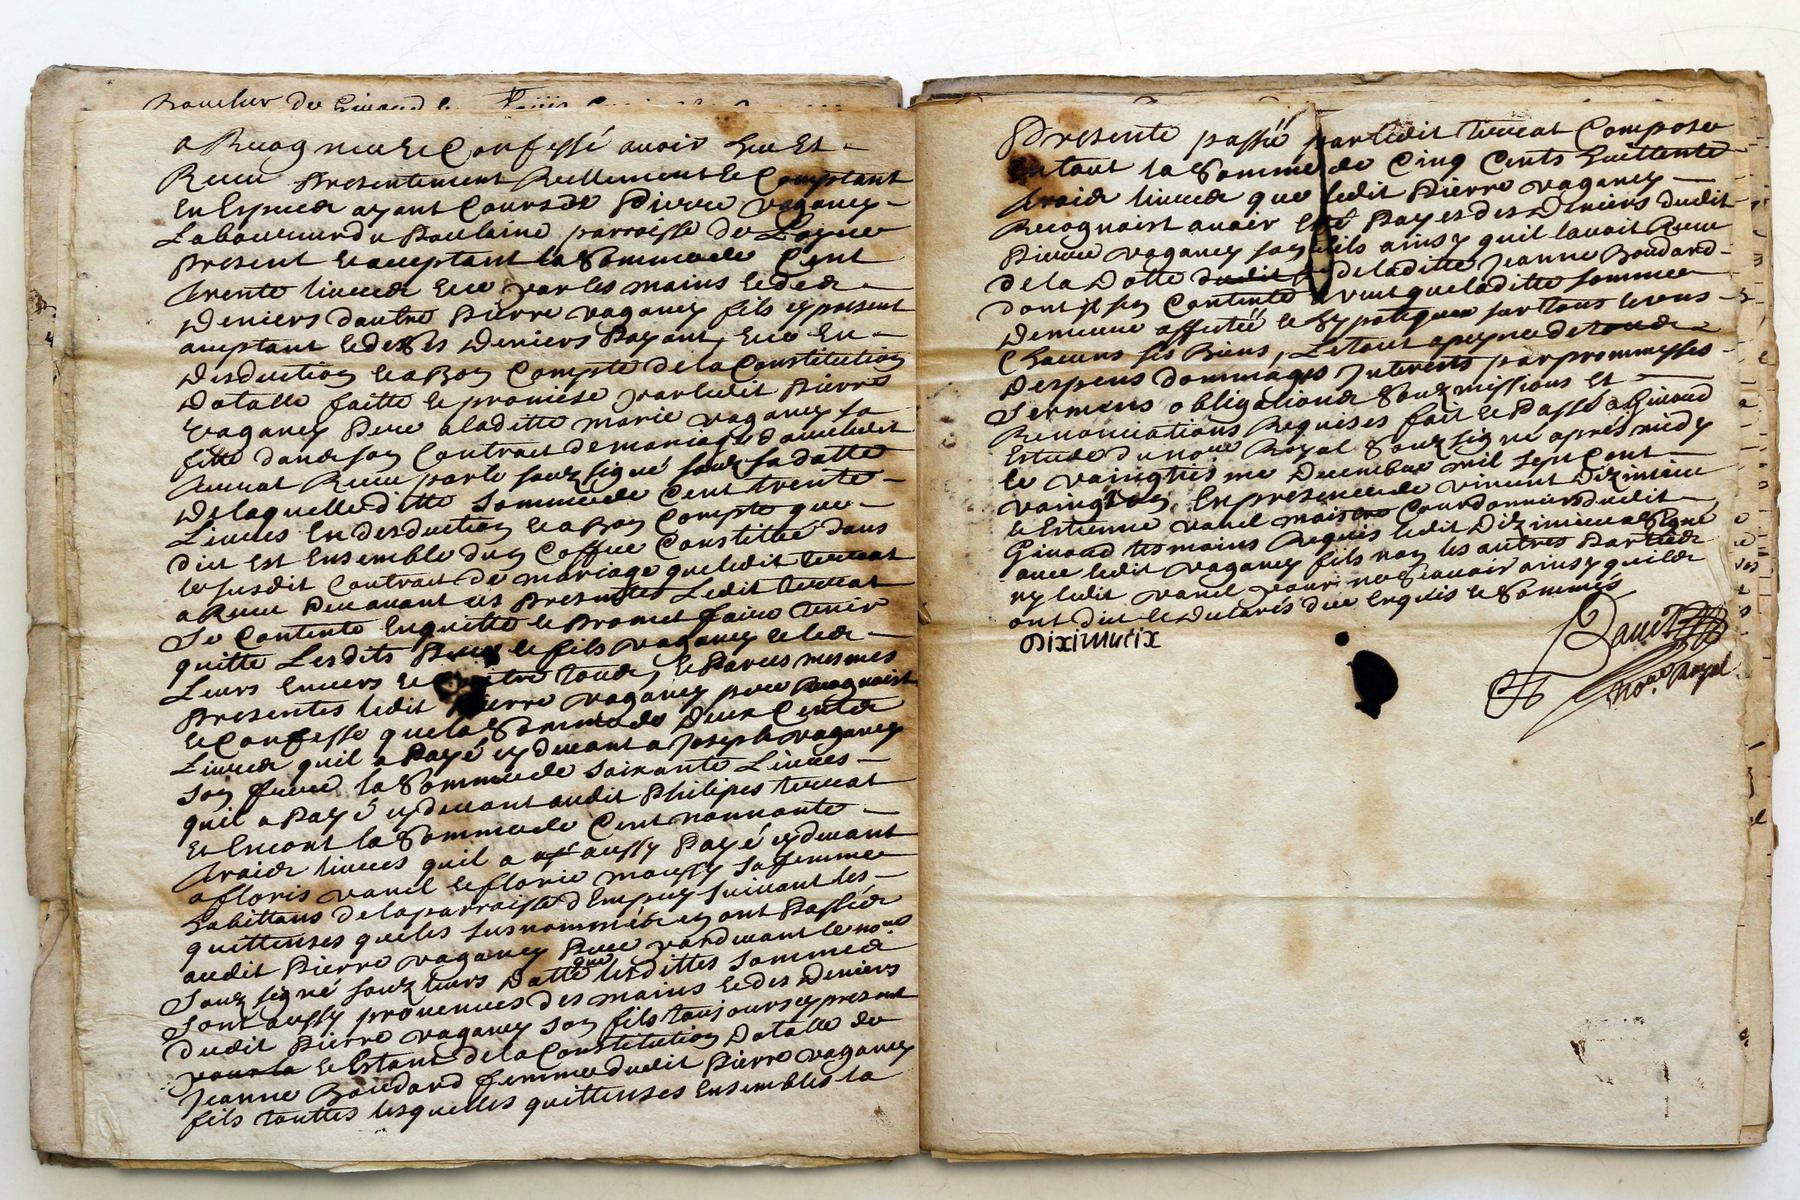 a Recogneu & Confessé avoir heu Et
Receu presentement Reellement & Comptant
En Especes ayant Cours de Pierre vaganey
Laboureur du parroisse de
present & acceptant la Somme de Cent
trente livres & ce par les mains & des
Deniers dautre Pierre vaganey fils cy present
acceptant & de ses Deniers Payant, & ce En
Desduction & a Bon Compte de la Constitution
Dotalle faitte & promise par ledit Pierre
vaganey Pere a laditte marie vaganey sa
fille dans son Contract de mariage dauec ledit
teuenat Receu par le souz signé souz sa datte
De laquelle ditte Somme de Cent trente
Livres En desduction & a Bon Compte que
dict est Ensemble dun Coffre Constitué dans
le susdit Contract de mariage que ledit
a Receu Deuant ces Presentes Ledit
Se Contente Enquitte & Promet faire tenir
quitte Lesdits Pere & fils vaganey & les
Leurs Envers & Contre tous, & Par ces mesmes
presentes ledit Pierre vaganey pere Recognoist
& Confesse que la Somme de Deux Centz
Livres quil a Payé cy deuant a Joseph vaganey
son frere la Somme de soixante Livres
quil a Payé cy deuant audit Philipes
Et Encore la Somme de Cent nonnante
trois livres quil a aussy Payé cy deuant
a floris vanel & florie moussy sa femme
habittans de la parroisse d suivant les
quittenses que les susnommés en ont Passées
audit Pierre vaganey Pere par deuant le no.re
Souz signé souz leurs Datte que lesdittes sommes
Sont aussy provenues des mains & des Deniers
dudit Pierre vaganey son fils toujours cy present
pour la & Estant de la Constitution Dotalle de
Jeanne Boudard femme dudit Pierre vaganey
fils touttes lesquelles quittenses Ensembles la
Presente passée par ledit Compose
En tout la Somme de Cinq Cents huittente
trois livres que ledit Pierre vaganey
Recognoist avoir esté Payes des Deniers dudit
Pierre vaganey son fils ainsy quil lavoit Receu
de la Dotte dudit de laditte Jeanne Boudard
dont il sen Contente & veut que laditte somme
Demeure affectée & Sur tous & uns
Chacuns ses Biens, Le tout a peyne de tous
Despens dommages Interests par prommesses
Sermens obligations Souzmissions Et
Renonciations Requises fait & Passé a Givaud
Estude du no.re Royal Souz signé apres midy
le vaingtiesme Decembre mil sept Cent
En presence de vincent Diximieux
& Estienne vanel Courdonniers dudit
Givaud tesmoins Requis ledit Diximieux a Signé
avec ledit vaganey fils non les autres Parties
ny ledit vanel pour ne Scavoir ainsy quils
ont dict & Declarés de ce Enquis & Sommés
Diximieix
no.re Royal